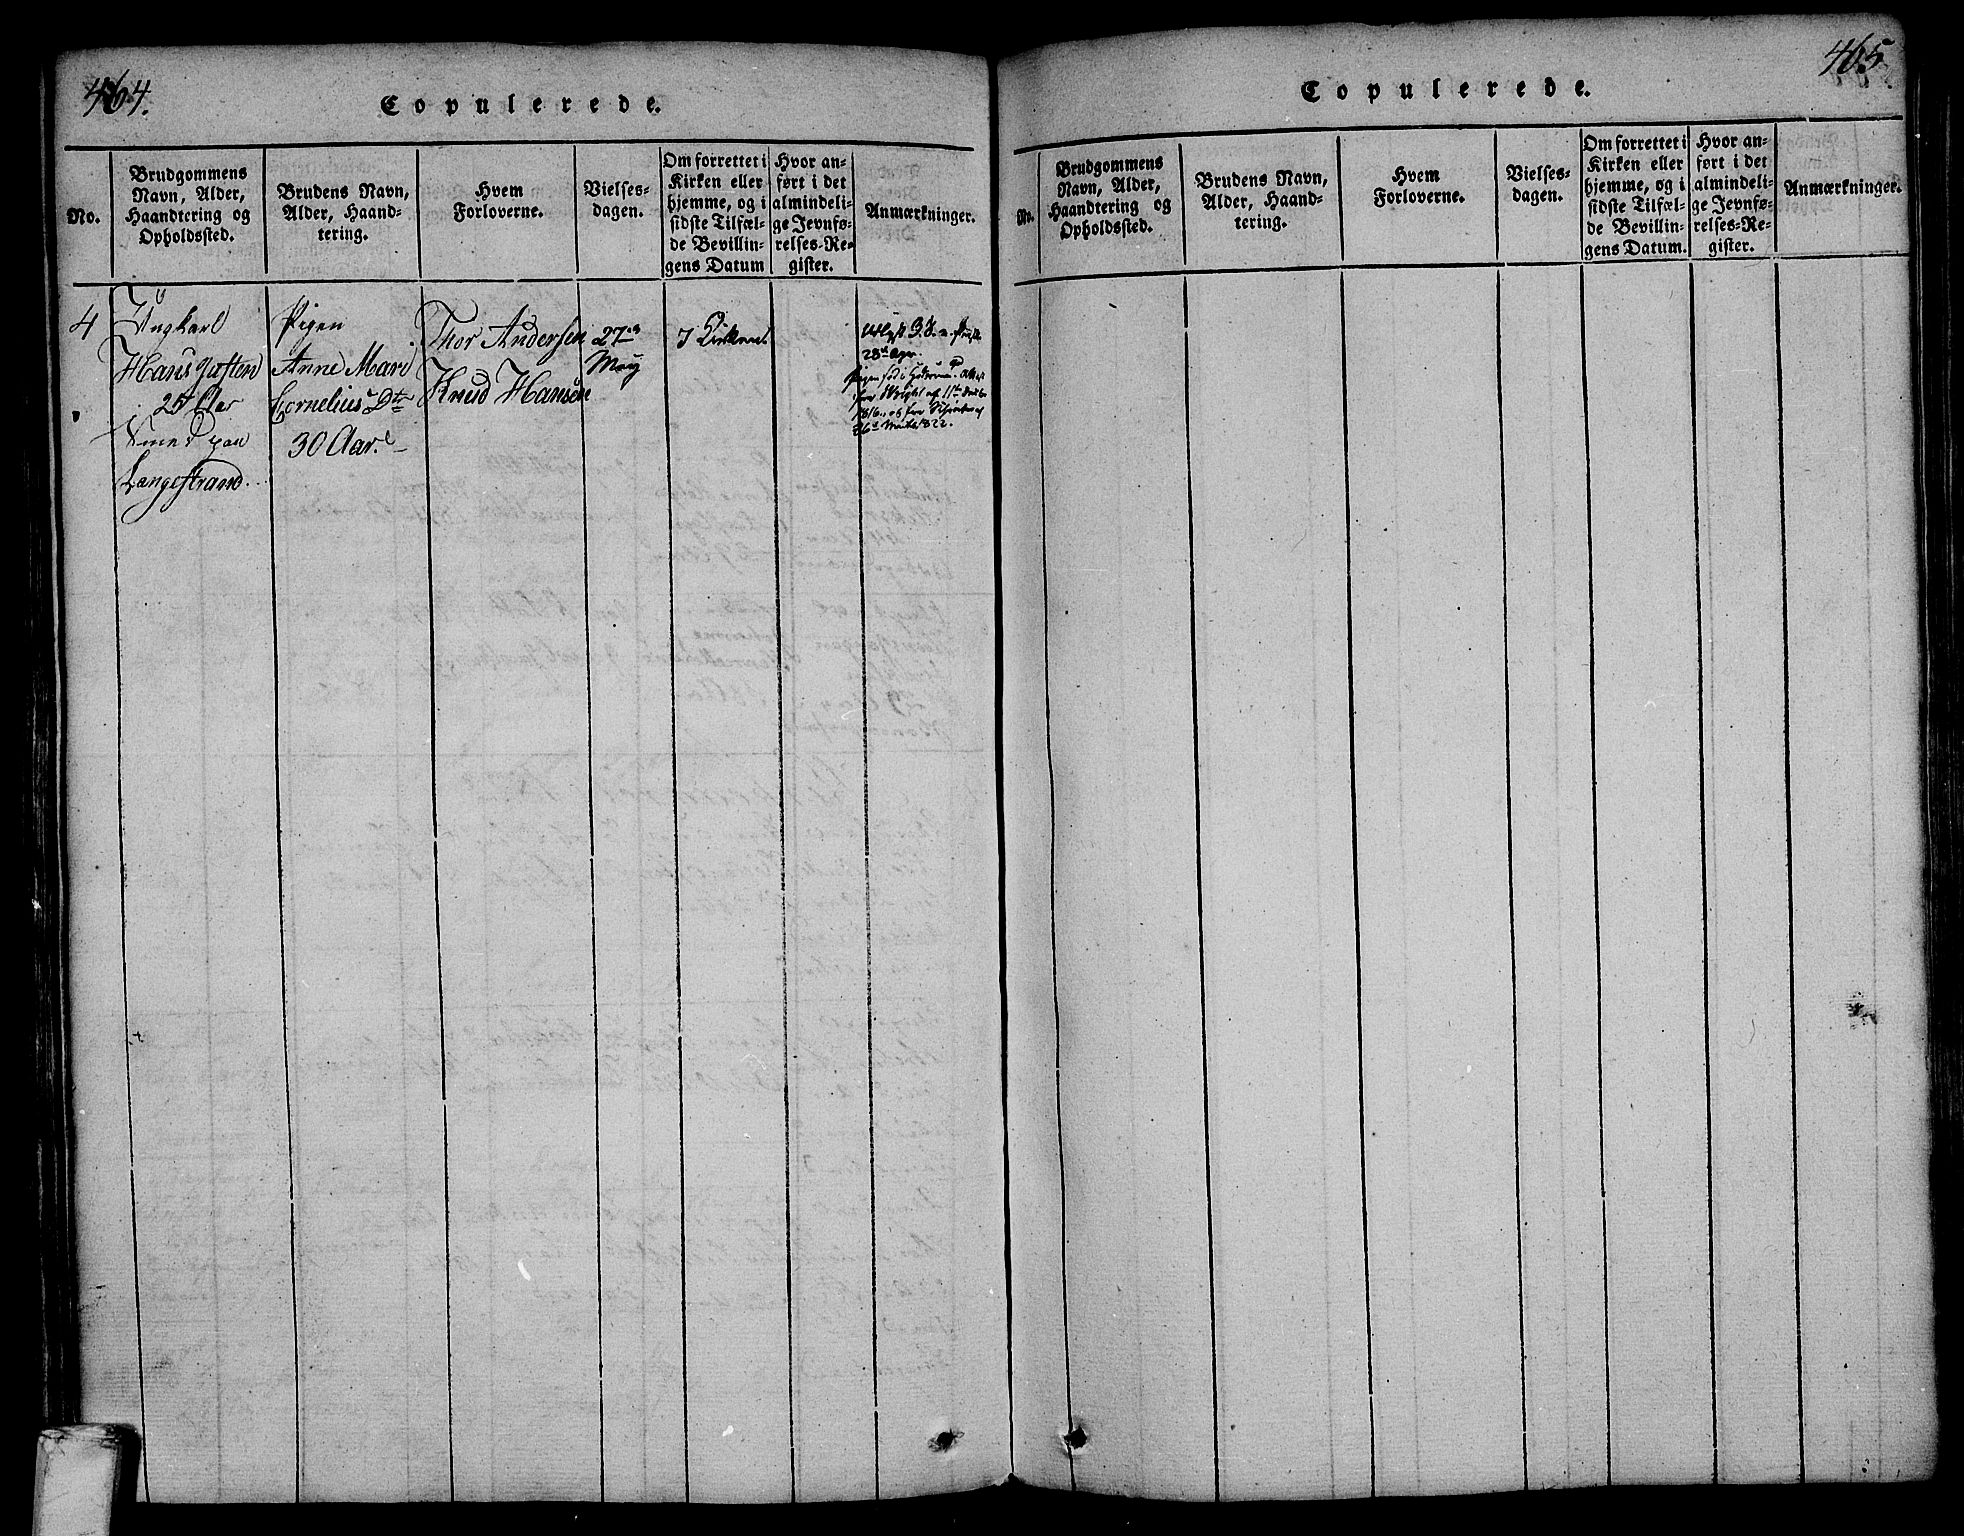 464.
Copulerede.
No.
Brudgommens
Navn, Alder,
Haandtering og
Opholdssted.
Brudens Navn,
Alder, Haand-
tering.
Hvem
Forloverne.
Vielses-
dagen.
Om forrettet i
Kirken eller
hjemme, og i
sidste Tilfæl-
de Bevillin-
gens Datum
Hvor an-
ført i det
almindeli-
ge Jevnfø-
relses-Re-
gister.
Anmærkninger.
4
Ungkarl
Hans
Aar
Smed paa
Langestrand
Pigen
Anne Mari
Cornelius Dtr
30 Aar.
Thor Andersen
Knud Hansen
27de
May
I Kirken
28de Apr.
Pigen fød i
af 11te
1816, og for
26de 1822.
465
Copulerede.
No.
Brudgommens
Navn, Alder,
Haandtering og
Opholdssted.
Brudens Navn,
Alder, Haand-
tering.
Hvem
Forloverne.
Vielses-
dagen.
Om forrettet i
Kirken eller
hjemme, og i
sidste Tilfæl-
de Bevillin-
gens Datum.
Hvor an-
ført i det
almindeli-
ge Jevnfø-
relses-Re-
gister.
Anmærkninger.